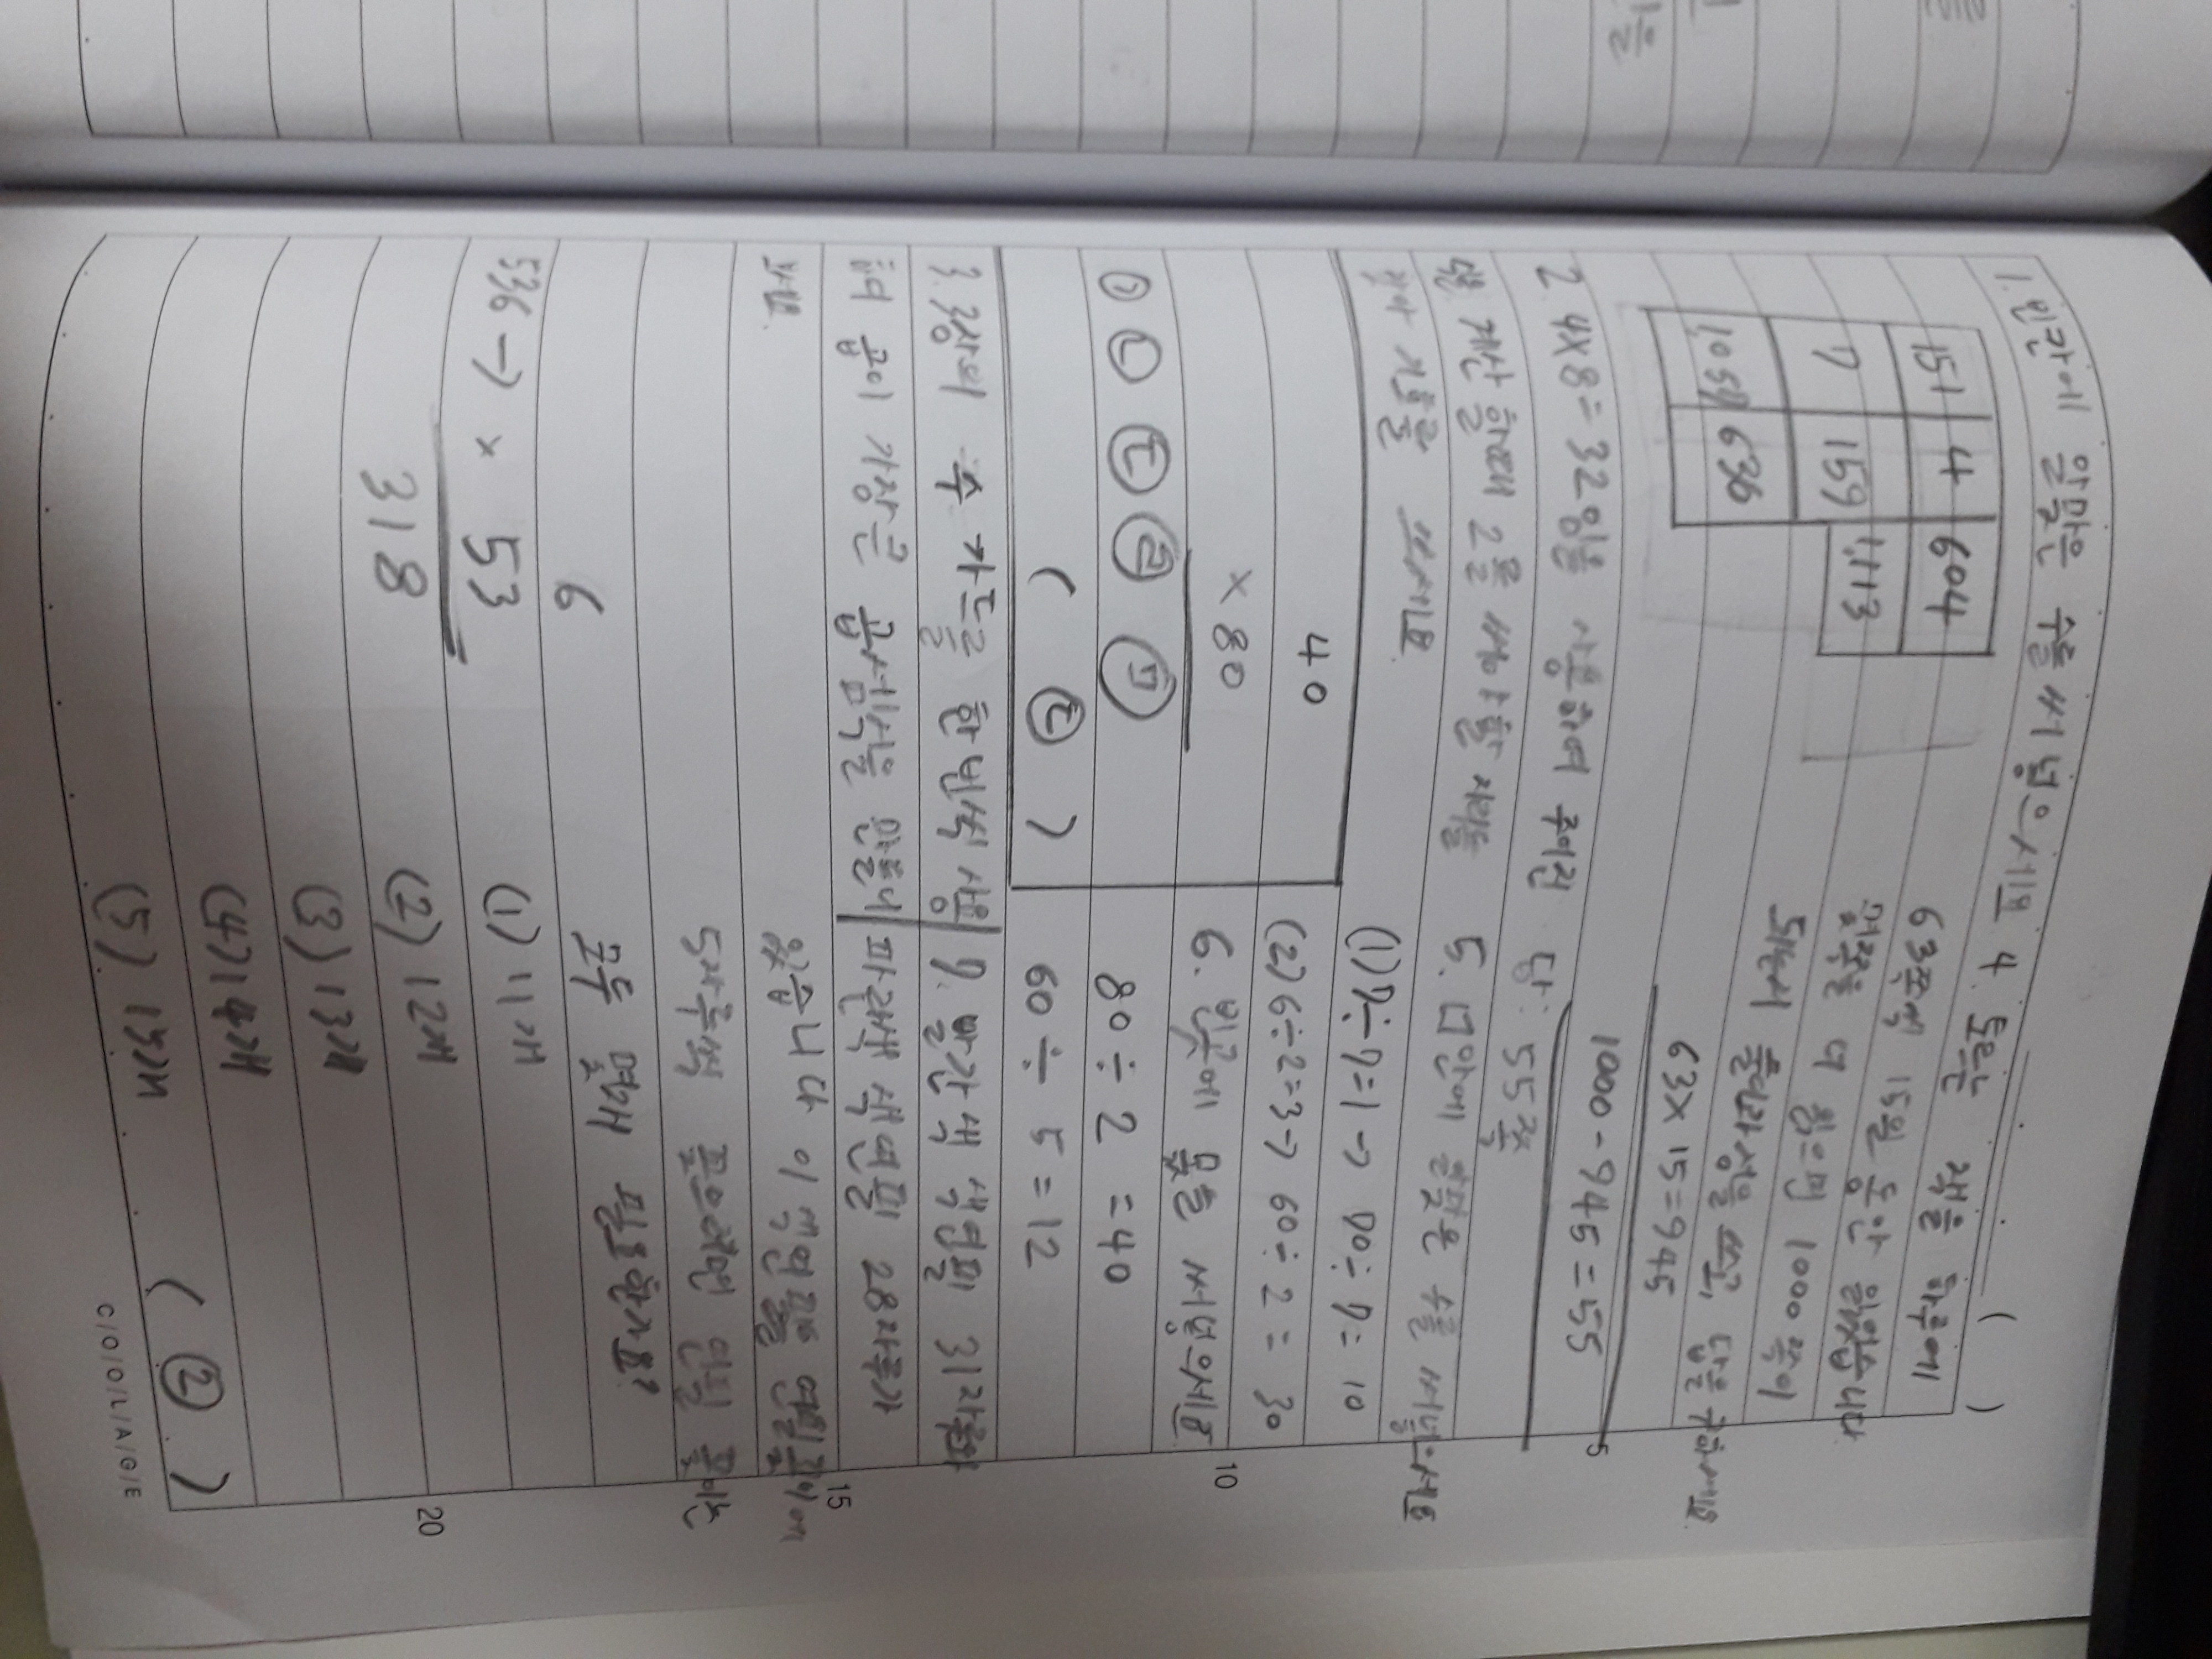 1. 빈칸에 알맞은 수를 써넣으시오
151 4 604
7 159 1,113
1,057 636
2. 4×8=32임을 이용하여 주어진
계산 할때 2를 써야 할 자리를
찾아 기호를 쓰시오
40
×80
㉠ ㉡ ㉢ ㉣ ㉤
( ㉢ )
3. 3장의 수 카드를 한번씩 사용
하여 곱이 가장큰 곱셈식을 만들어
보세요.
6
536 → × 53
318
4. 동은 책을 하루에 ( )
63쪽씩 15일 동안 읽었습니다
몇쪽을 더 읽으면 1000쪽이
되는지 풀이과정을 쓰고, 답을 구하세요.
63×15=945
1000-945=55
답: 55쪽
5. ㅁ안에 알맞은 수를 써넣으세요
(1) 7÷7=1 → 70÷7=10
(2) 6÷2=3→ 60÷2= 30
6. 빈곳에 몫을 써넣으세요
80÷2 =40
60÷ 5=12
7. 빨간색 색연필 31자루와
파란색 색연필 28자루가
있습니다 이 색연필을 연필꽂이에
5자루씩 꽂으려면 연필 꽂이는
모두 몇개 필요한가요?
(1) 11개
(2) 12개
(3) 13개
(4) 14개
(5) 15개
( ② )
5
10
15
20
C/O/O/L/A/G/E